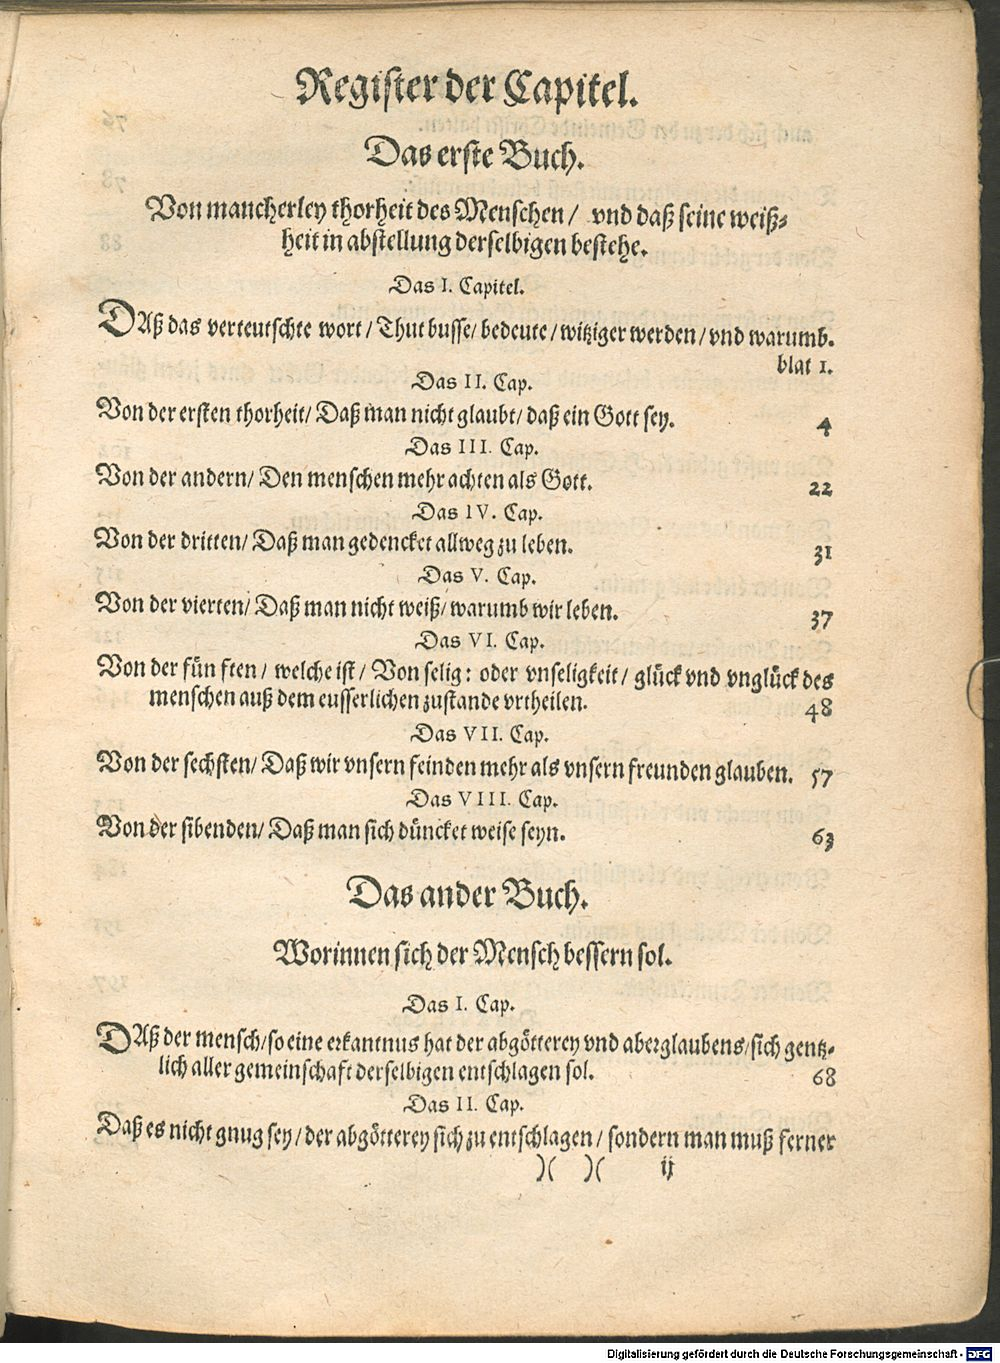 Register der Capitel.
Das erste Buch.
Von mancherley thorheit des Menschen / vnd daß seine weiß-
heit in abstellung derselbigen bestehe.
Das I. Capitel.
DAß das verteutschte wort / Thut busse / bedeute / witziger werden / vnd warumb.
blat 1.
Das II. Cap.
Von der ersten thorheit / Daß man nicht glaubt / daß ein Gott sey. 4
Das III. Cap.
Von der andern / Den menschen mehr achten als Gott. 22
Das IV. Cap.
Von der dritten / Daß man gedencket allweg zu leben. 31
Das V. Cap.
Von der vierten / Daß man nicht weiß / warumb wir leben. 37
Das VI. Cap.
Von der fünften / welche ist / Von selig: oder vnseligkeit / glück vnd vnglück des
menschen auß dem eusserlichen zustande vrtheilen. 48
Das VII. Cap.
Von der sechsten / Daß wir vnsern feinden mehr als vnsern freunden glauben. 57
Das VIII. Cap.
Von der sibenden / Daß man sich düncket weise seyn. 63
Das ander Buch.
Worinnen sich der Mensch bessern sol.
Das I. Cap.
DAß der mensch / so eine erkantnus hat der abgötterey vnd aberglaubens / sich gentz-
lich aller gemeinschaft derselbigen entschlagen sol. 68
Das II. Cap.
Daß es nicht gnug sey / der abgötterey sich zu entschlagen / sondern man muß ferner
)( )( ij
Digitalisierung gefördert durch die Deutsche Forschungsgemeinschaft - DFG